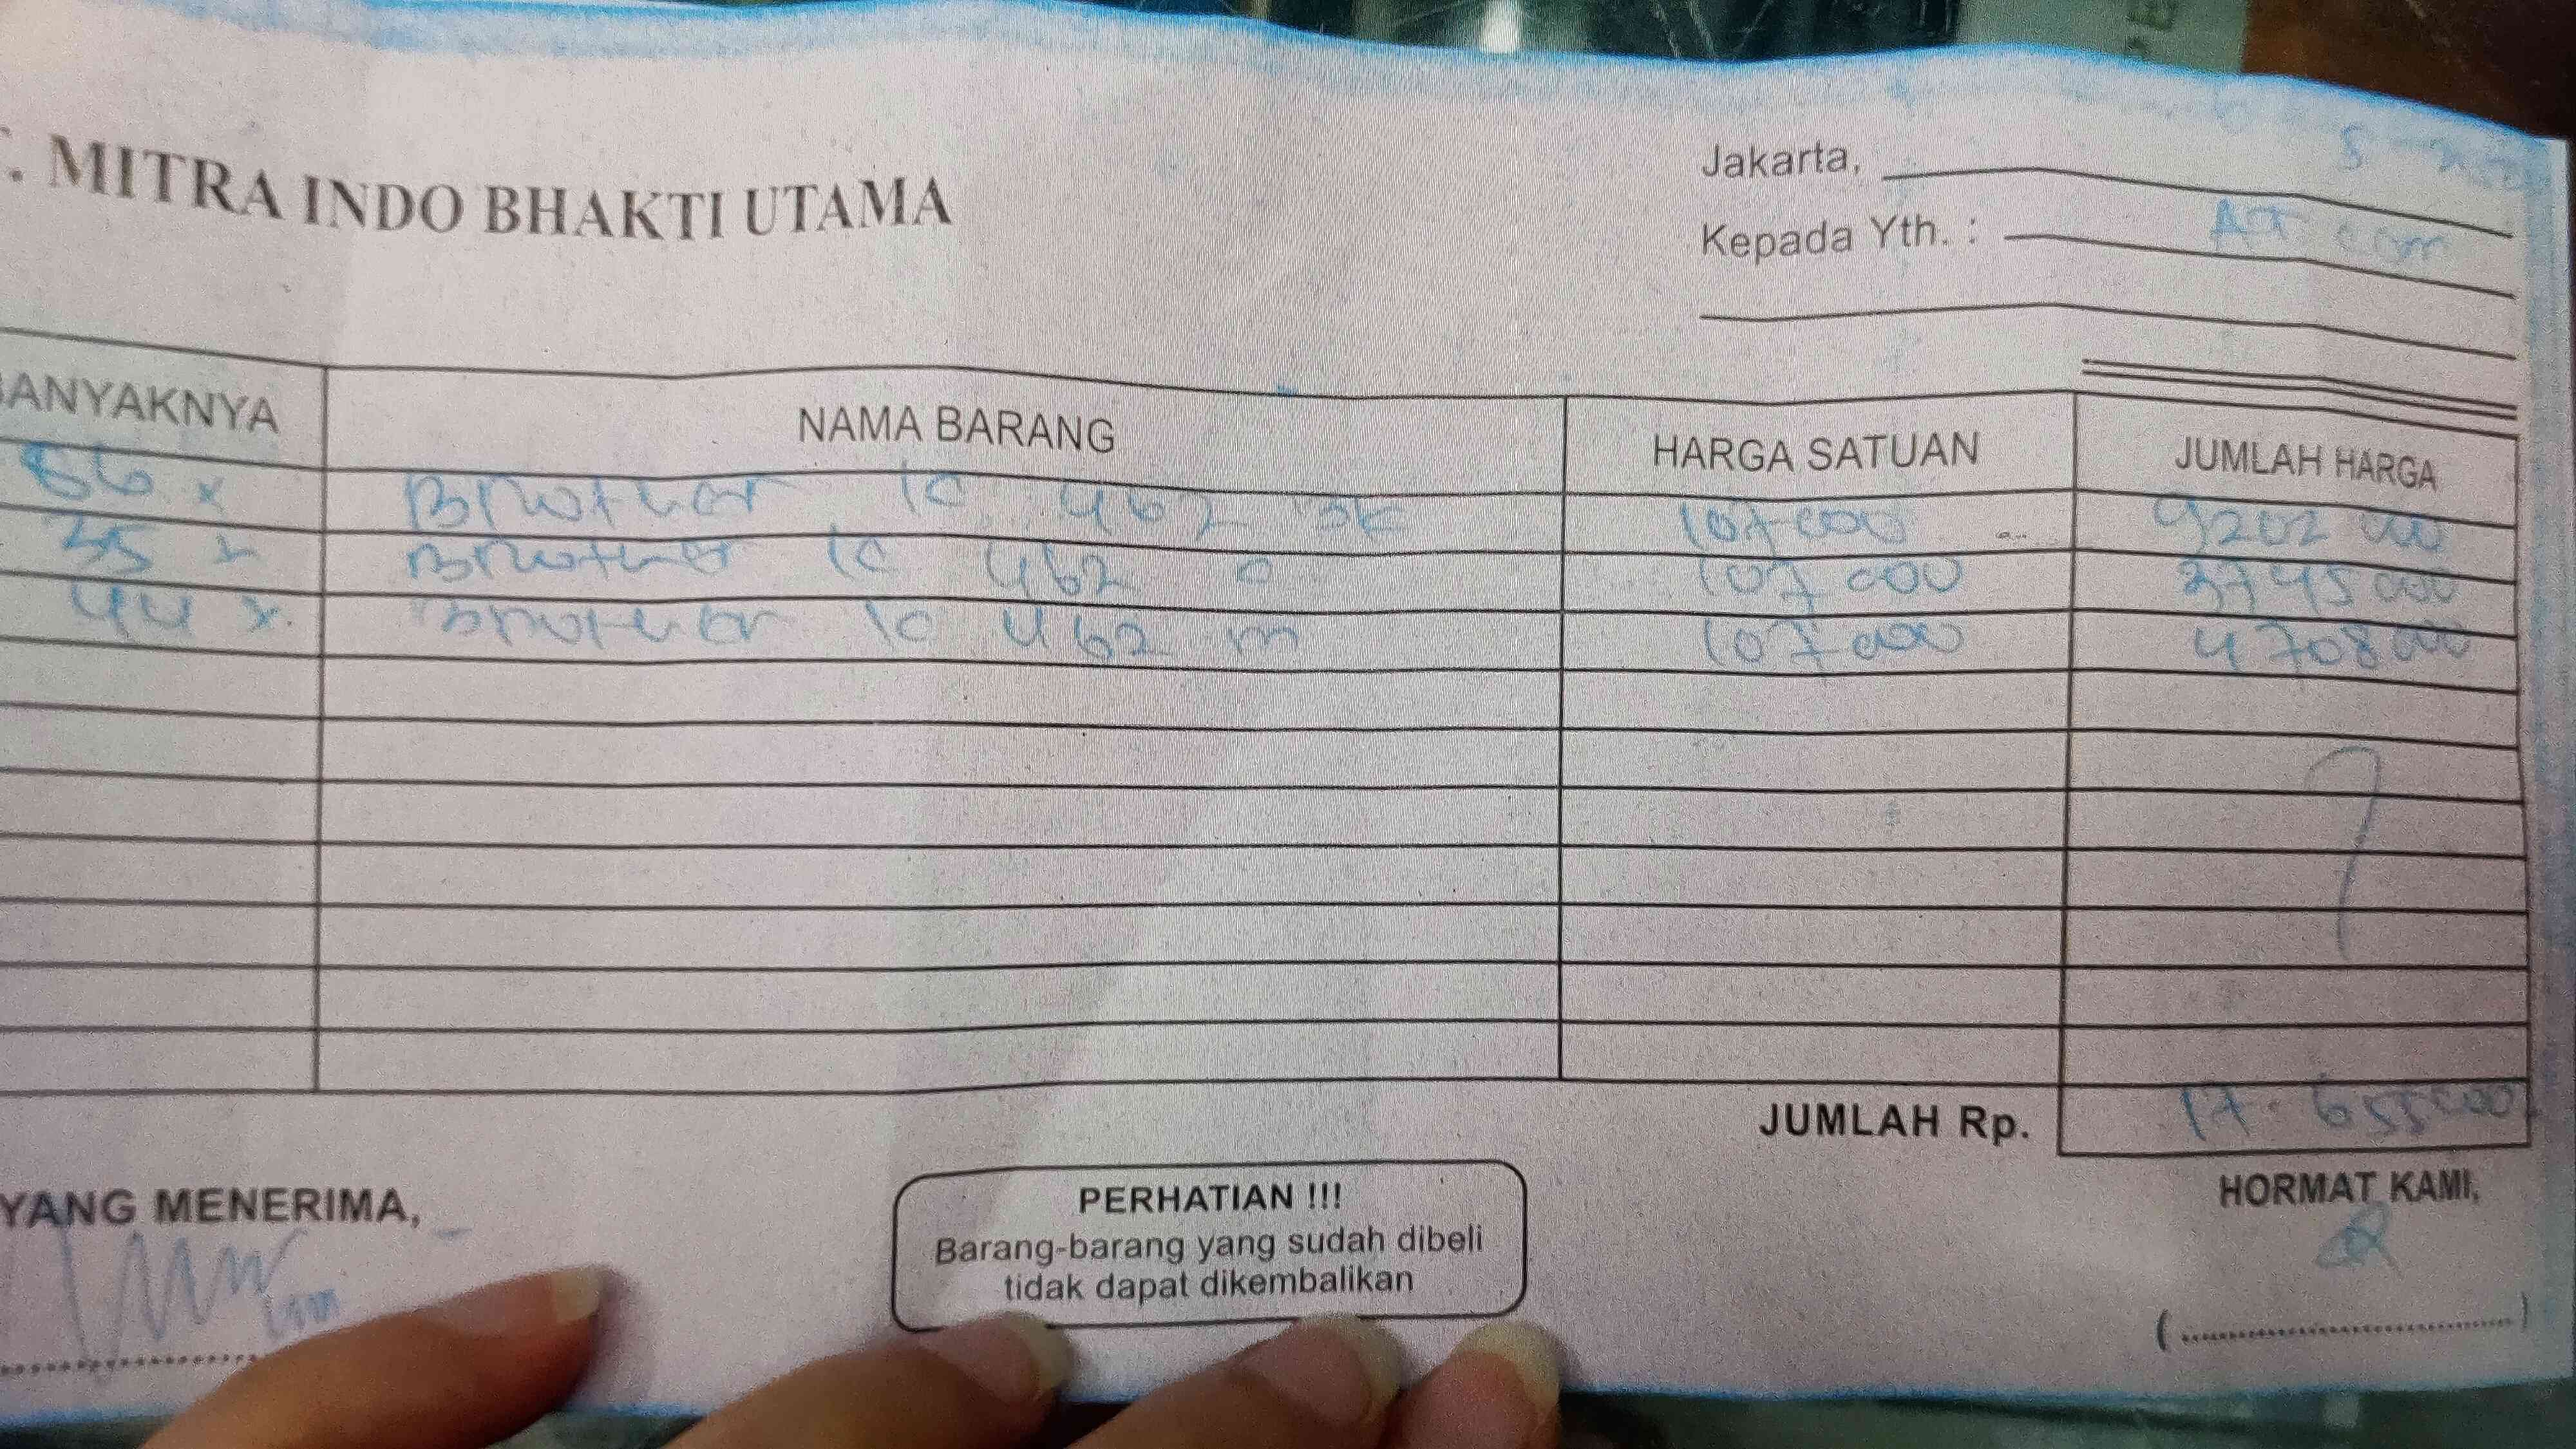 . MITRA INDO BHAKTI UTAMA
Jakarta,
Kepada Yth. : AT com
BANYAKNYA NAMA BARANG HARGA SATUAN JUMLAH HARGA
86 x Brother lc 462 BK 107 000 9202 000
35 x Brother lc 462 c 107 000 3745 000
44 x. Brother lc 462 m 107 000 4708 000
JUMLAH Rp. 17.655000
YANG MENERIMA,
PERHATIAN !!!
Barang-barang yang sudah dibeli
tidak dapat dikembalikan
HORMAT KAMI,
(....................)